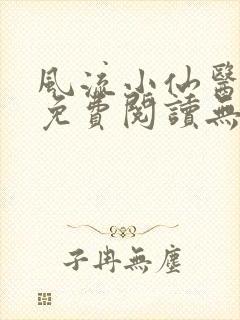 風流小仙醫
免費閱讀無
子冉無塵